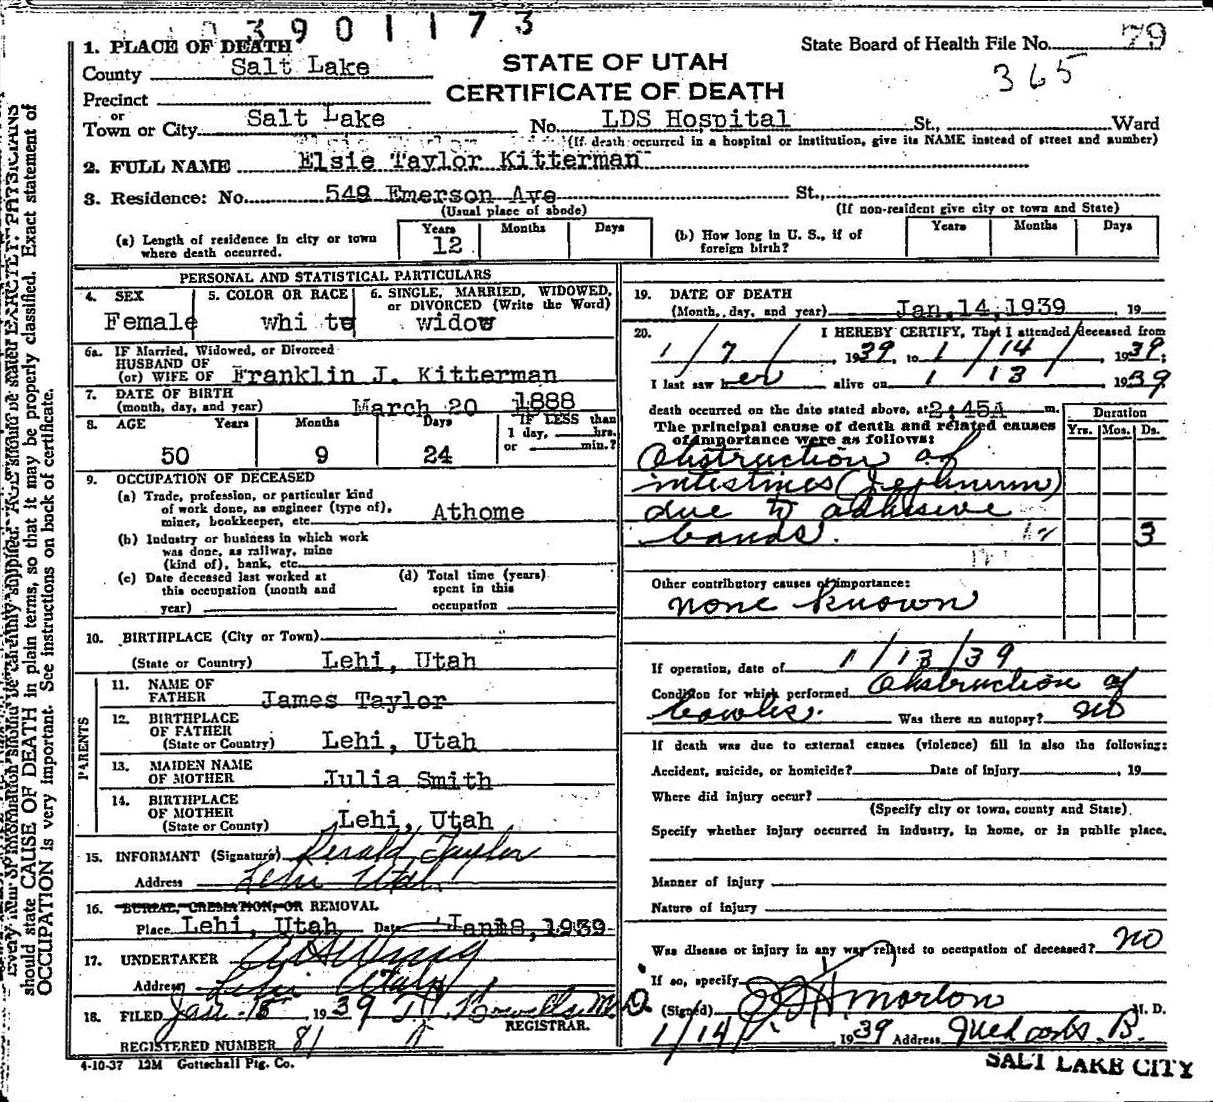 3901173
1. PLACE OF DEATH
County Salt Lake
Precinct
or
Town or City Salt Lake No. LDS Hospital St., Ward
(If death occurred in a hospital or institution, give its NAME instead of street and number)
STATE OF UTAH
CERTIFICATE OF DEATH
State Board of Health File No. 79
365
2. FULL NAME Elsie Taylor Kitterman
3. Residence: No. 548 Emerson Ave St.,
(Usual place of abode)
(If non-resident give city or town and State)
(a) Length of residence in city or town where death occurred.
Years 12 Months Days
(b) How long in U. S., if of foreign birth?
Years Months Days
PERSONAL AND STATISTICAL PARTICULARS
4. SEX
Female
5. COLOR OR RACE
white
6. SINGLE, MARRIED, WIDOWED, or DIVORCED (Write the Word)
widow
6a. IF Married, Widowed, or Divorced
HUSBAND OF
(or) WIFE OF Franklin J. Kitterman
7. DATE OF BIRTH
(month, day, and year) March 20 1888
8. AGE Years Months Days
50 9 24
IF LESS than
1 day, hrs.
or min.?
9. OCCUPATION OF DECEASED
(a) Trade, profession, or particular kind
of work done, as engineer (type of),
miner, bookkeeper, etc. Athome
(b) Industry or business in which work
was done, as railway, mine
(kind of), bank, etc.
(c) Date deceased last worked at
this occupation (month and
year)
(d) Total time (years)
spent in this
occupation
10. BIRTHPLACE (City or Town)
(State or Country) Lehi, Utah
PARENTS
11. NAME OF
FATHER James Taylor
12. BIRTHPLACE
OF FATHER
(State or Country) Lehi, Utah
13. MAIDEN NAME
OF MOTHER Julia Smith
14. BIRTHPLACE
OF MOTHER
(State or County) Lehi, Utah
15. INFORMANT (Signature) Taylor
Address Lehi Utah
16. BURIAL, CREMATION, OR REMOVAL
Place Lehi, Utah Date Jan 18, 1939
17. UNDERTAKER
Address Lehi Utah
18. FILED Jan 15 1939 M.D.
REGISTRAR.
REGISTERED NUMBER 81
19. DATE OF DEATH
(Month, day, and year) Jan. 14, 1939 19
20. I HEREBY CERTIFY, That I attended deceased from
1/7/ 1939, to 1/14/, 1939;
I last saw her alive on 1 13 1939
death occurred on the date stated above, at 2:45A m.
The principal cause of death and related causes
of importance were as follows:
Duration
Yrs. Mos. Ds.
Obstruction of
intestines (Jejhnum)
due to adhisive
bands. 3
Other contributory causes of importance:
none known
If operation, date of 1/13/39
Condition for which performed Obstruction of
bowles. Was there an autopsy? no
If death was due to external causes (violence) fill in also the following:
Accident, suicide, or homicide? Date of injury , 19
Where did injury occur?
(Specify city or town, county and State)
Specify whether injury occurred in industry, in home, or in public place.
Manner of injury
Nature of injury
Was disease or injury in any way related to occupation of deceased? no
If so, specify
(Signed) Morton M. D.
1/14/ 1939 Address Med arts. B.
SALT LAKE CITY
4-10-37 12M Gottschall Ptg. Co.
should state CAUSE OF DEATH in plain terms, so that it may be properly classified. Exact statement of
OCCUPATION is very important. See instructions on back of certificate.